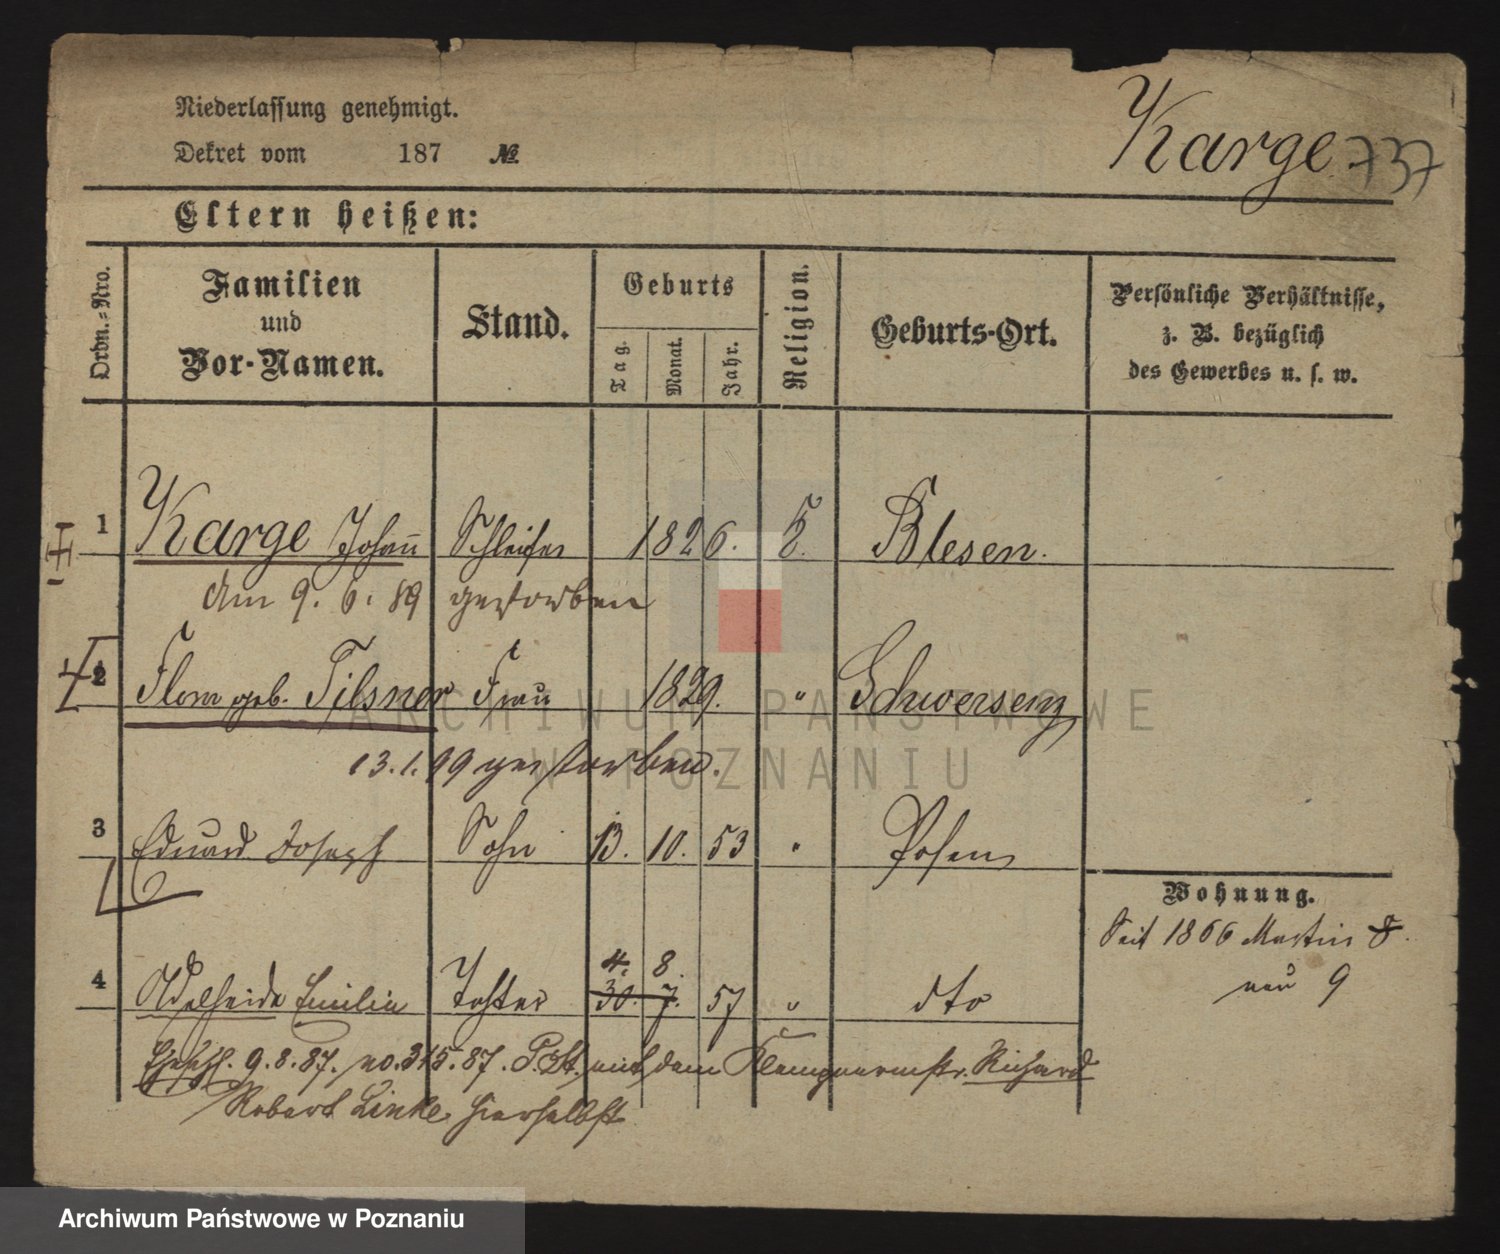 Niederlassung genehmigt.
Dekret vom 187 №
Karge 737
Eltern heißen:
Ordn.-Nro.
Familien
und
Vor-Namen.
Stand.
Geburts
Tag.
Monat.
Jahr.
Religion.
Geburts-Ort.
Persönliche Verhältnisse,
z. B. bezüglich
des Gewerbes u. s. w.
1 Karge Johann Schleifer 1826. Blesen.
am 9. 6. 89 gestorben
2 Flora geb. Tilsner Frau 1829. " Schwersenz
13.1.99 gestorben.
3 Eduard Joseph Sohn 13. 10. 53 " Posen
Wohnung.
Seit 1866 Martin 8.
neu 9
4. 8.
4 Adelheide Emilie Tochter 30. 7. 57 " dto
Eheschl. 9.8.87. no. 315. 87. P. St. mit dem Klempnermstr. Richard
Robert Linke hierselbst
ARCHIWUM PAŃSTWOWE
W POZNANIU
Archiwum Państwowe w Poznaniu